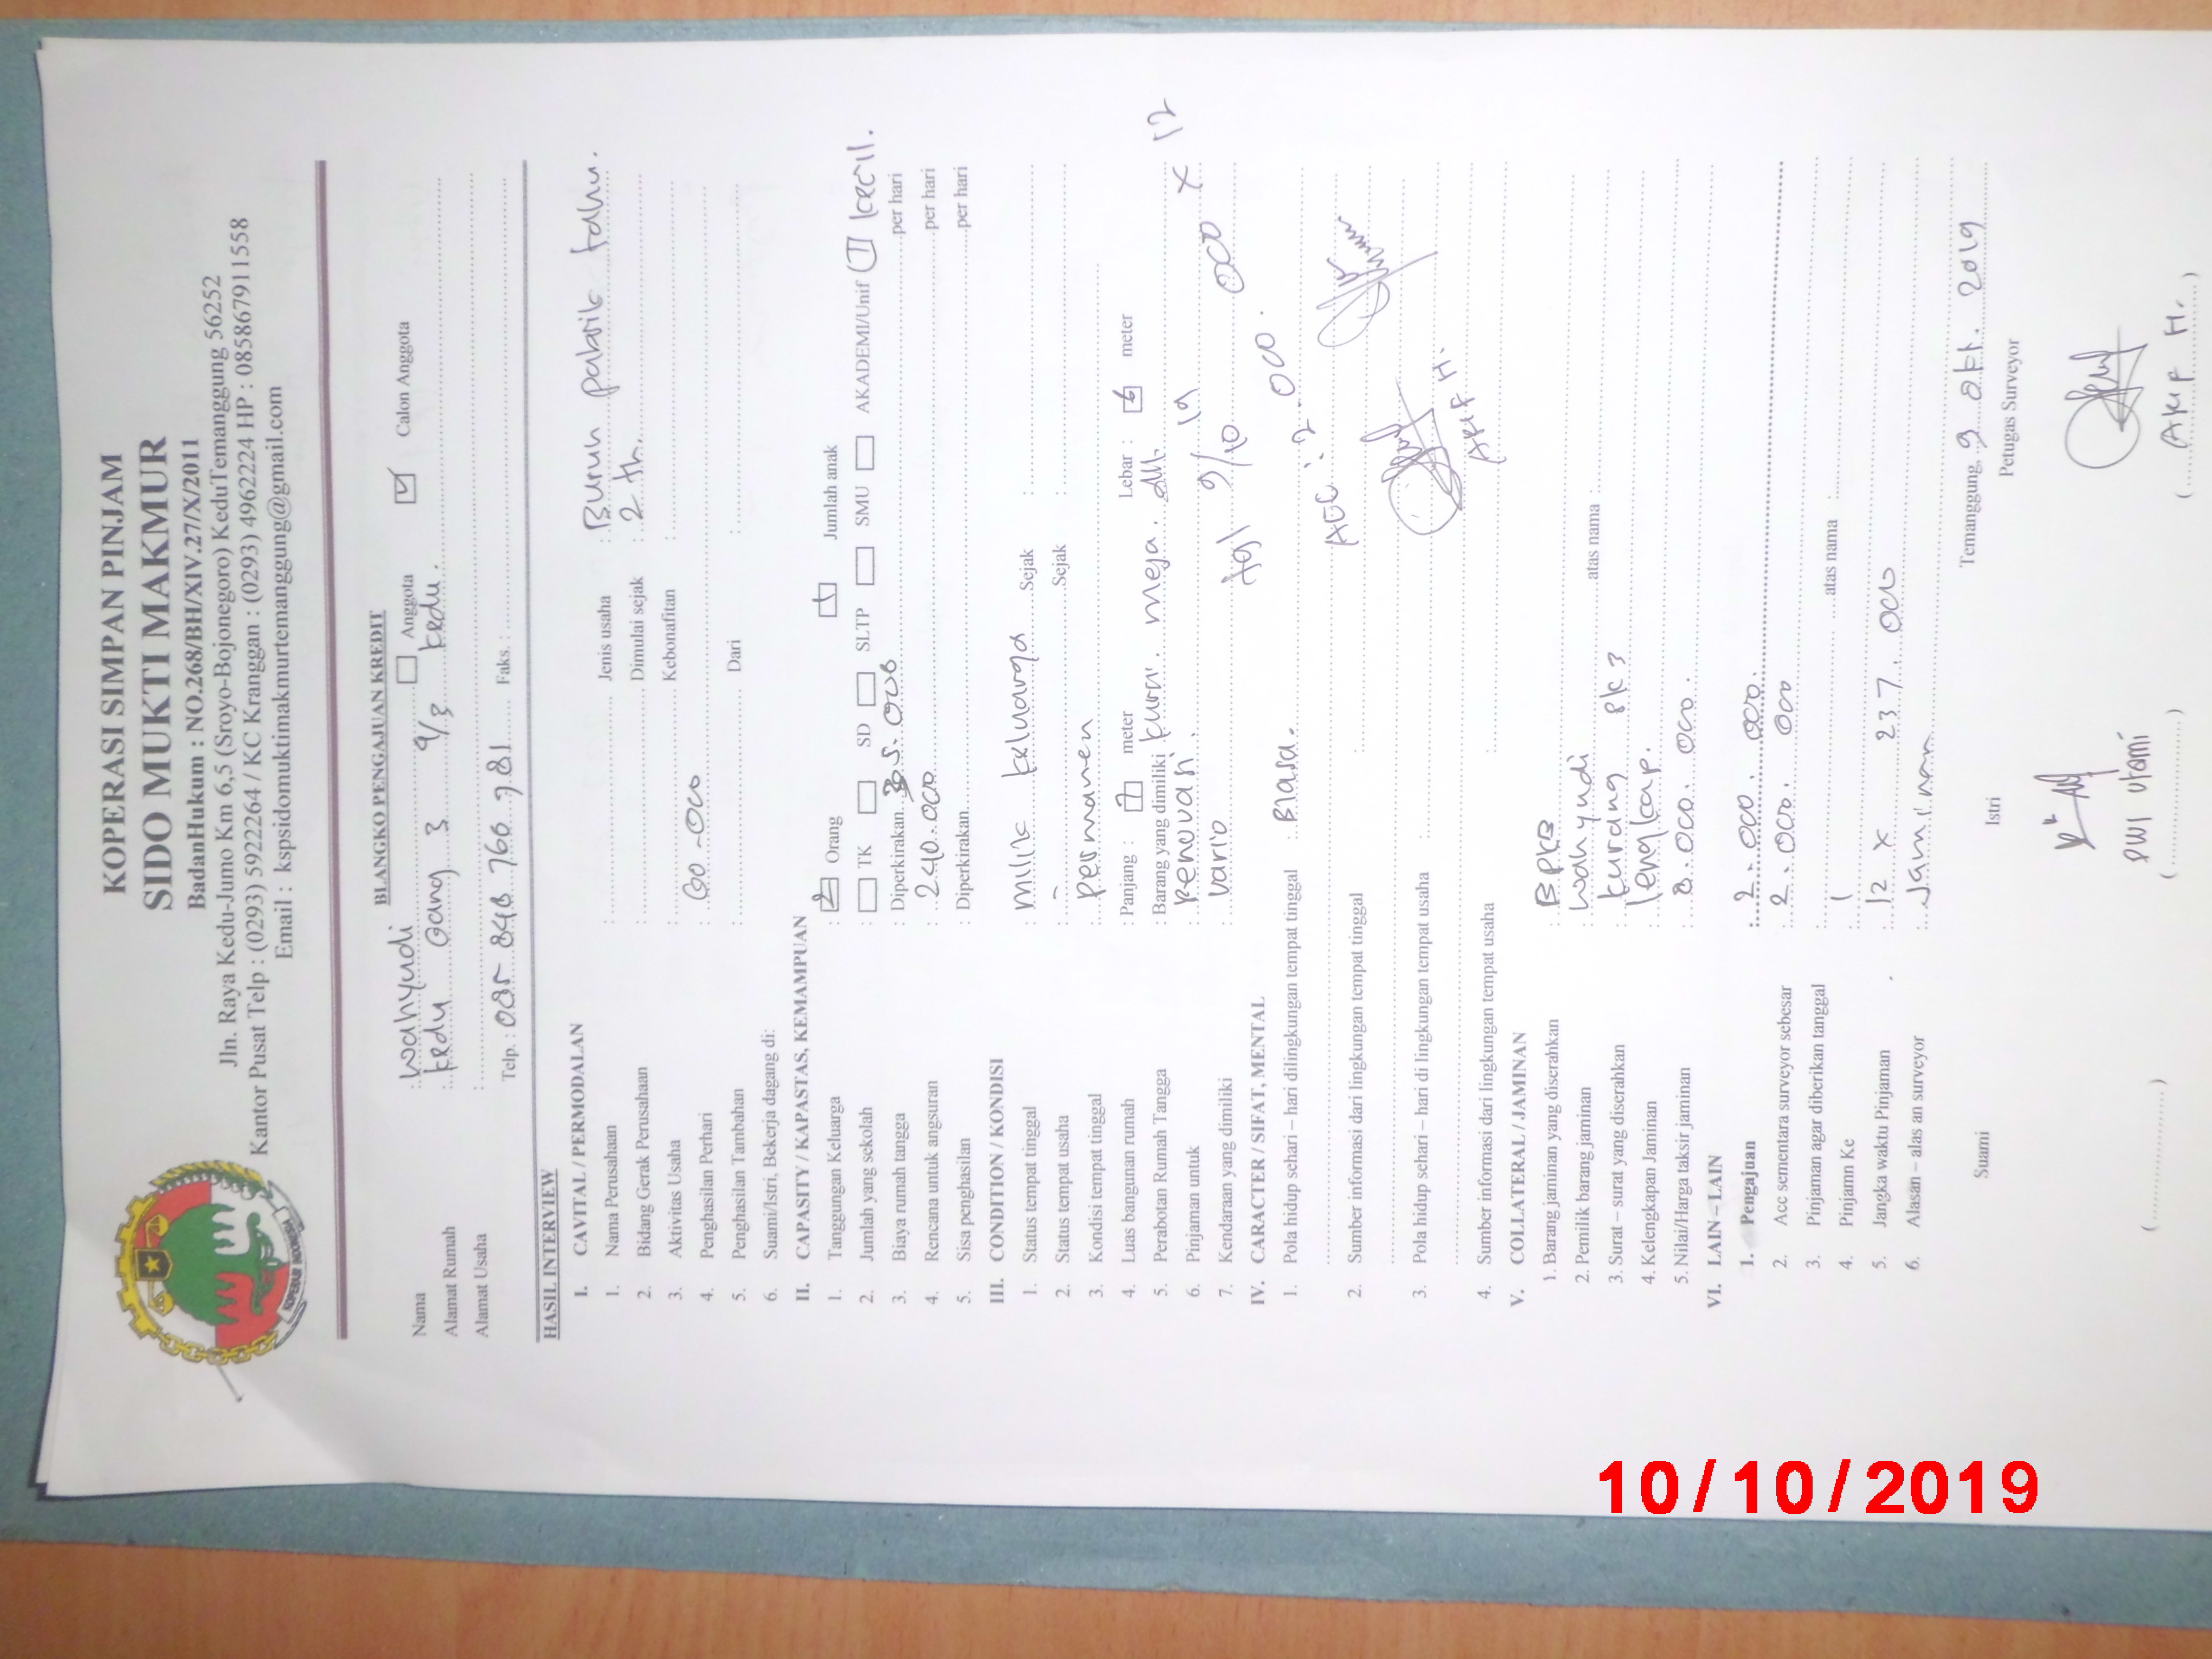 KOPERASI SIMPAN PINJAM
SIDO MUKTI MAKMUR
BadanHukum : NO.268/BH/XIV.27/X/2011
Jln. Raya Kedu-Jumo Km 6,5 (Sroyo-Bojonegoro) KeduTemanggung 56252
Kantor Pusat Telp : (0293) 5922264 / KC Kranggan : (0293) 4962224 HP : 085867911558
Email : kspsidomuktimakmurtemanggung@gmail.com
KOPERASI INDONESIA
BLANGKO PENGAJUAN KREDIT
Nama : Wahyudi Anggota Calon Anggota
Alamat Rumah : Kedu Gang 3 9/3 Kedu.
Alamat Usaha :
Telp. : 085 848 766 781 Faks. :
HASIL INTERVIEW
I. CAVITAL / PERMODALAN
1. Nama Perusahaan : Jenis usaha : Buruh pabrik tahu.
2. Bidang Gerak Perusahaan : Dimulai sejak : 2 th.
3. Aktivitas Usaha : Kebonafitan :
4. Penghasilan Perhari : 60.000
5. Penghasilan Tambahan : Dari :
6. Suami/Istri, Bekerja dagang di:
II. CAPASITY / KAPASTAS, KEMAMPUAN
1. Tanggungan Keluarga : 2 Orang 1 Jumlah anak
2. Jumlah yang sekolah : TK SD SLTP SMU AKADEMI/Unif (1) kecil.
3. Biaya rumah tangga : Diperkirakan 35.000 per hari
4. Rencana untuk angsuran : 240.000 per hari
5. Sisa penghasilan : Diperkirakan per hari
III. CONDITION / KONDISI
1. Status tempat tinggal : milik keluarga Sejak :
2. Status tempat usaha : - Sejak :
3. Kondisi tempat tinggal : permanen
4. Luas bangunan rumah : Panjang : 7 meter Lebar : 6 meter
5. Perabotan Rumah Tangga : Barang yang dimiliki kursi. meja. dll.
6. Pinjaman untuk : Renovasi.
7. Kendaraan yang dimiliki : Vario
tgl 9/10 19
ACC : 2.000.000 X 12
IV. CARACTER / SIFAT, MENTAL
1. Pola hidup sehari – hari dilingkungan tempat tinggal : Biasa.
2. Sumber informasi dari lingkungan tempat tinggal :
3. Pola hidup sehari – hari di lingkungan tempat usaha :
4. Sumber informasi dari lingkungan tempat usaha :
V. COLLATERAL / JAMINAN
1. Barang jaminan yang diserahkan : BPKB
2. Pemilik barang jaminan : Wahyudi atas nama :
3. Surat – surat yang diserahkan : kurang
4. Kelengkapan Jaminan : lengkap.
5. Nilai/Harga taksir jaminan : 8.000.000.
VI. LAIN – LAIN
1. Pengajuan : 2.000.000.
2. Acc sementara surveyor sebesar : 2.000.000
3. Pinjaman agar diberikan tanggal : atas nama :
4. Pinjamn Ke : 1
5. Jangka waktu Pinjaman : 12 x 237.000
6. Alasan – alas an surveyor : Jaminan
Temanggung, 9 okt. 2019
Suami Istri Petugas Surveyor
DWI Utami
10/10/2019